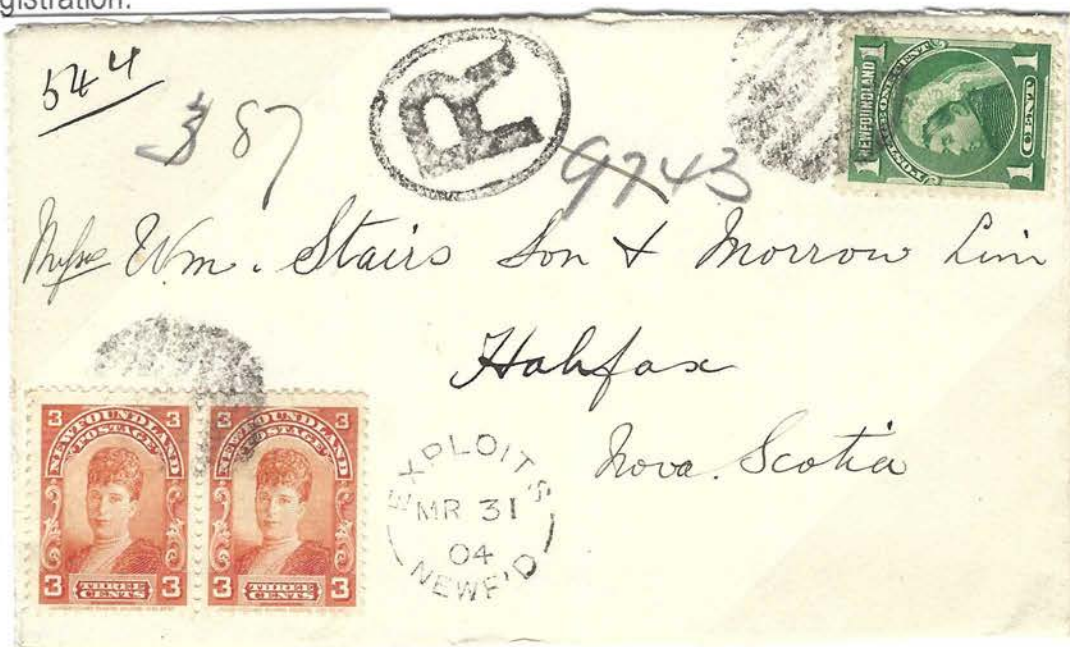 gistration.
544
87
R
9743
1 NEWFOUNDLAND 1
POSTAGE ONE CENT
1 CENT 1
Messrs Wm. Stairs Son & Morrow Lim
Halifax
Nova. Scotia
3 NEWFOUNDLAND 3
POSTAGE
3 THREE CENTS 3
3 NEWFOUNDLAND 3
POSTAGE
3 THREE CENTS 3
EXPLOITS
MR 31
04
NEWF'D